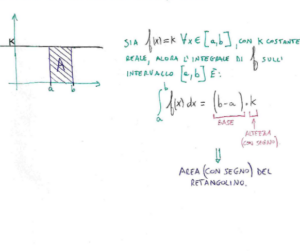 K
A
a b
SIA f(x)=k ∀x∈[a,b], CON K COSTANTE
REALE, ALLORA L'INTEGRALE DI f SULL'
INTERVALLO [a,b] È:
∫ₐᵇ f(x) dx = (b-a)·k
BASE
ALTEZZA
(CON SEGNO)
⇓
AREA (CON SEGNO) DEL
RETANGOLINO.